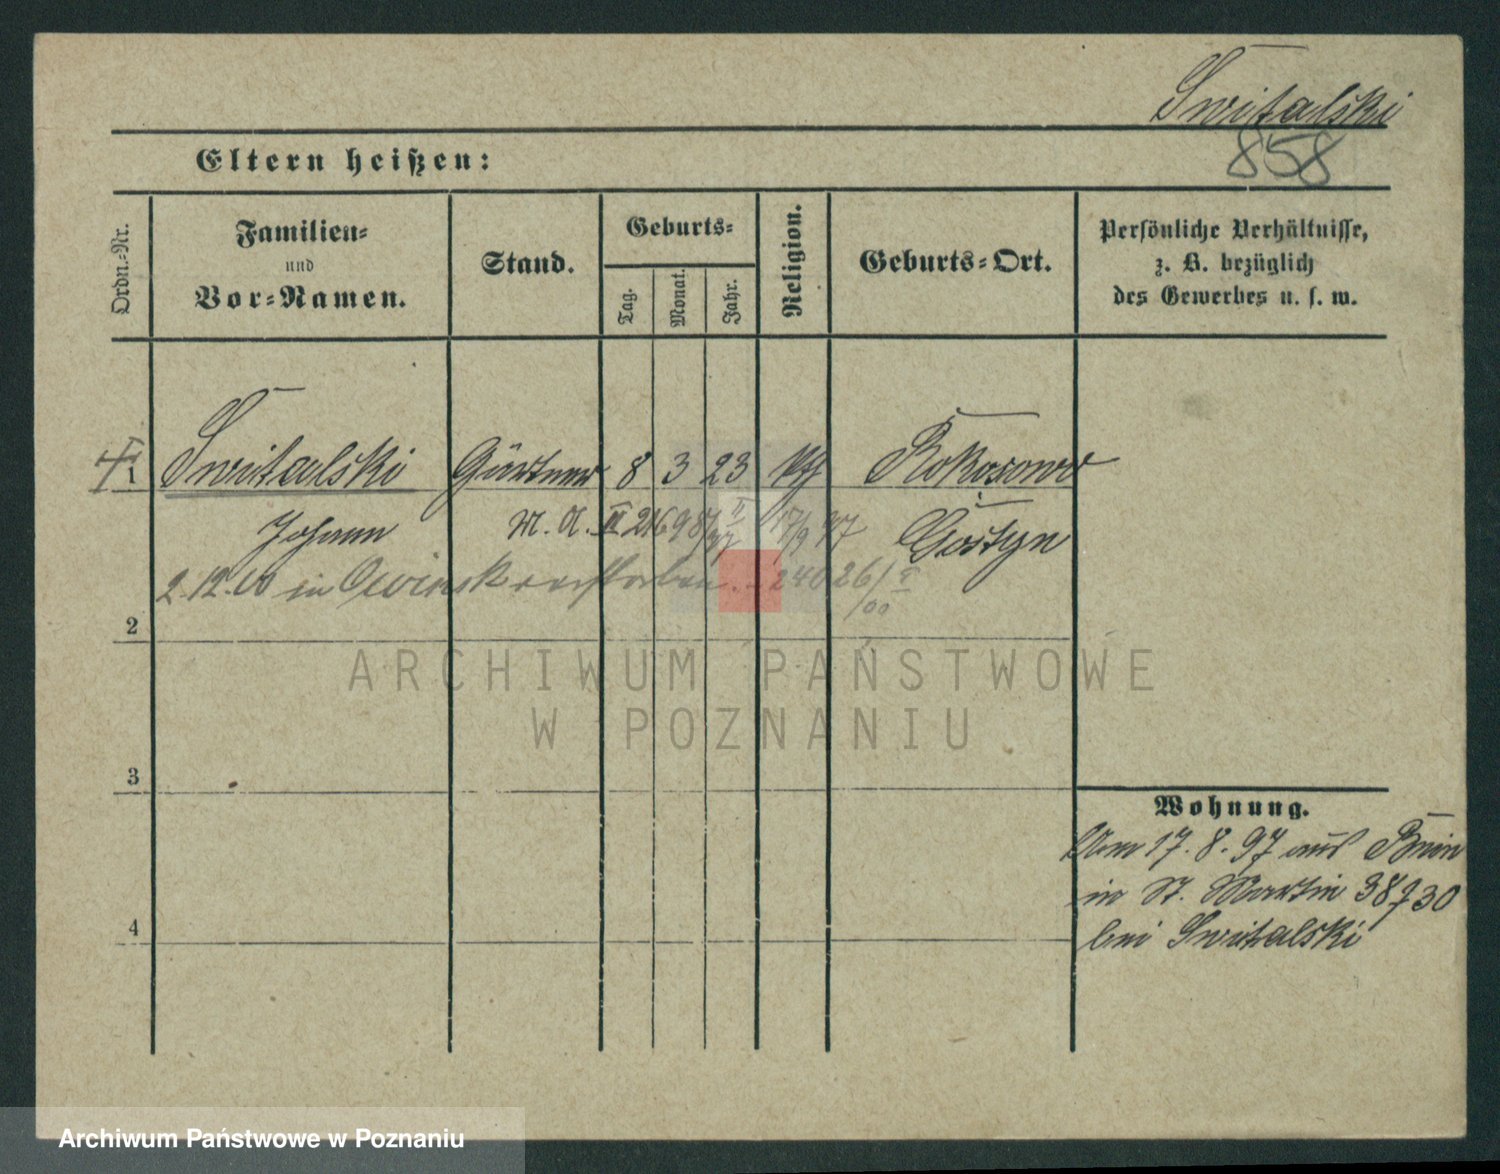 Switalski
858
Eltern heißen:
Ordn.-Nr.
Familien-
und
Vor-Namen.
Stand.
Geburts-
Tag.
Monat.
Jahr.
Religion.
Geburts-Ort.
Persönliche Verhältnisse,
z. B. bezüglich
des Gewerbes u. s. w.
1 Switalski Gärtner 8 3 23 kth Rokosowo
Johann M. A. II 21698/ II 97 17/9 97 Gostyn
2.12.00 in Owinsk verstorben. - 24026/ V 00
2
ARCHIWUM PAŃSTWOWE
W POZNANIU
3
Wohnung.
Am 17.8.97 aus Bnin
in St. Martin 38 730
bei Switalski
4
Archiwum Państwowe w Poznaniu